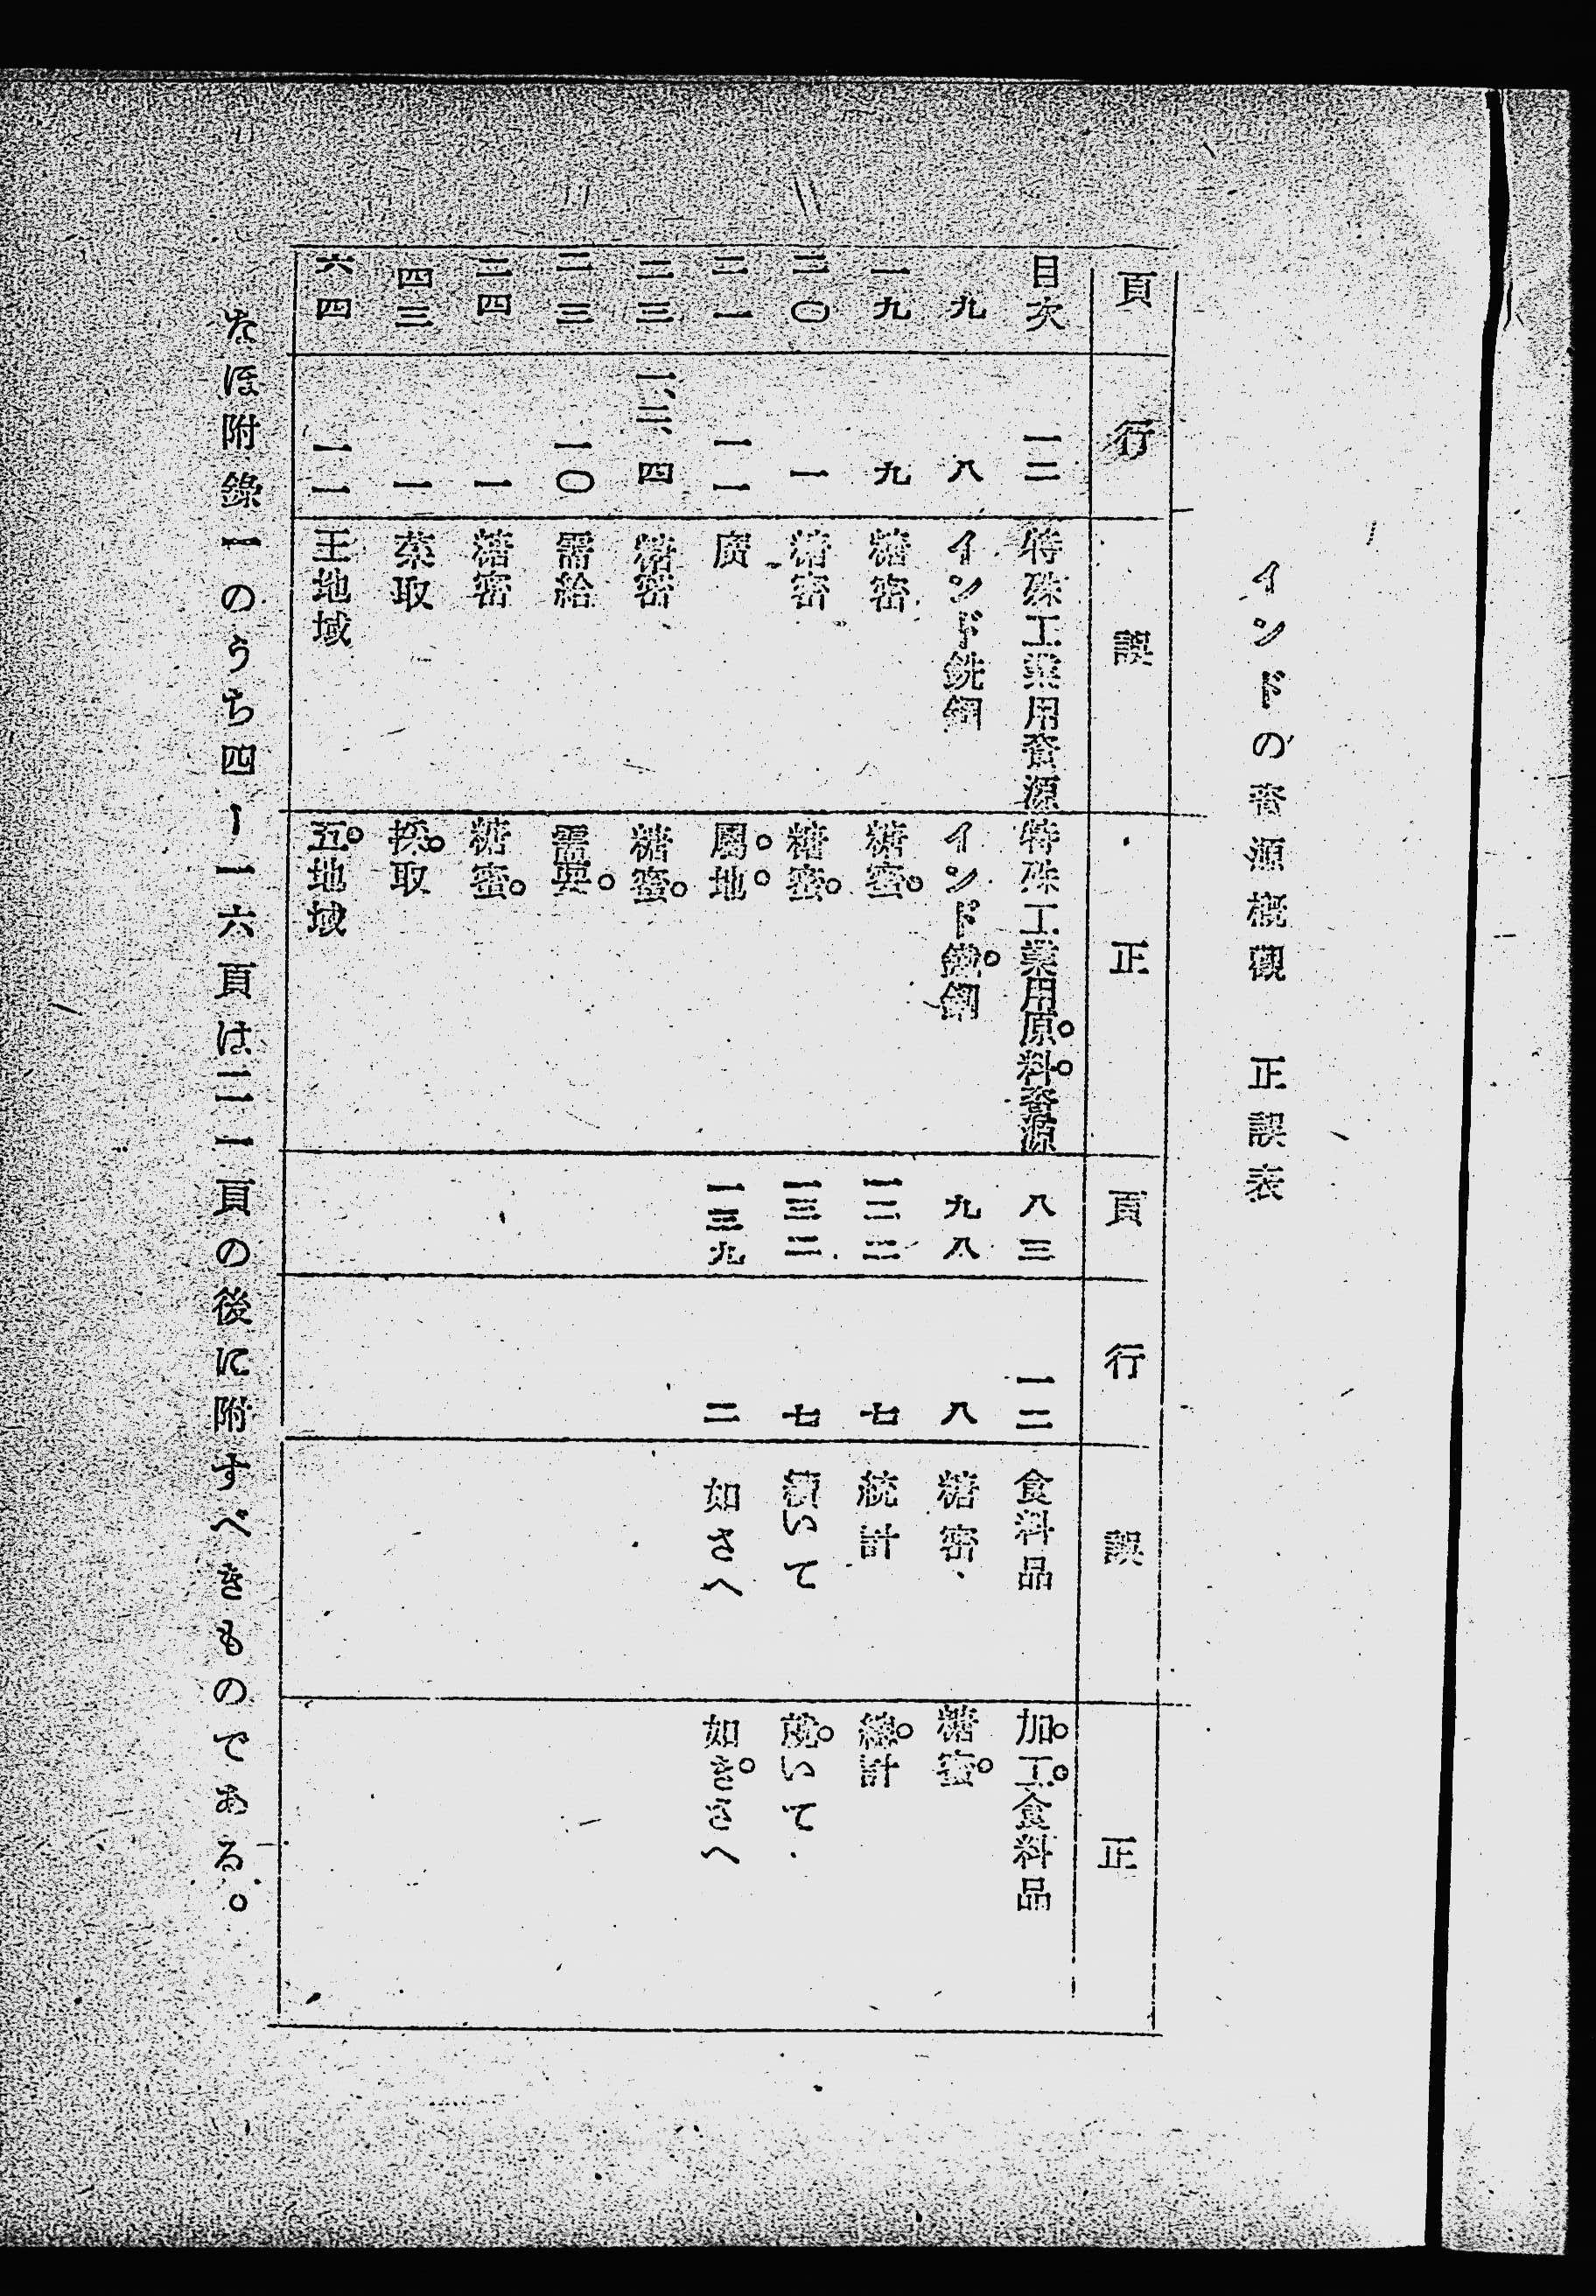 インドの資源概觀 正誤表
頁 行 誤 正 頁 行 誤 正
目次 一二 特殊工業用資源 特殊工業用原料資源 八三 一二 食料品 加工食料品
九 八 インド銑鋼 インド鐵鋼 九八 八 糖密 糖蜜
一九 九 糖密 糖蜜 一二二 七 統計 總計
二〇 一 糖密 糖蜜 一三二 七 續いて 就いて
二一 一一 廣 屬地 一三九 二 如さく 如きさく
二三 一、三、四 糖密 糖蜜
二三 一〇 需給 需要
二四 一 糖密 糖蜜
四三 一 菜取 採取
六四 一一 王地域 五地域
なほ附錄一のうち四ー一六頁は二一頁の後に附すべきものである。